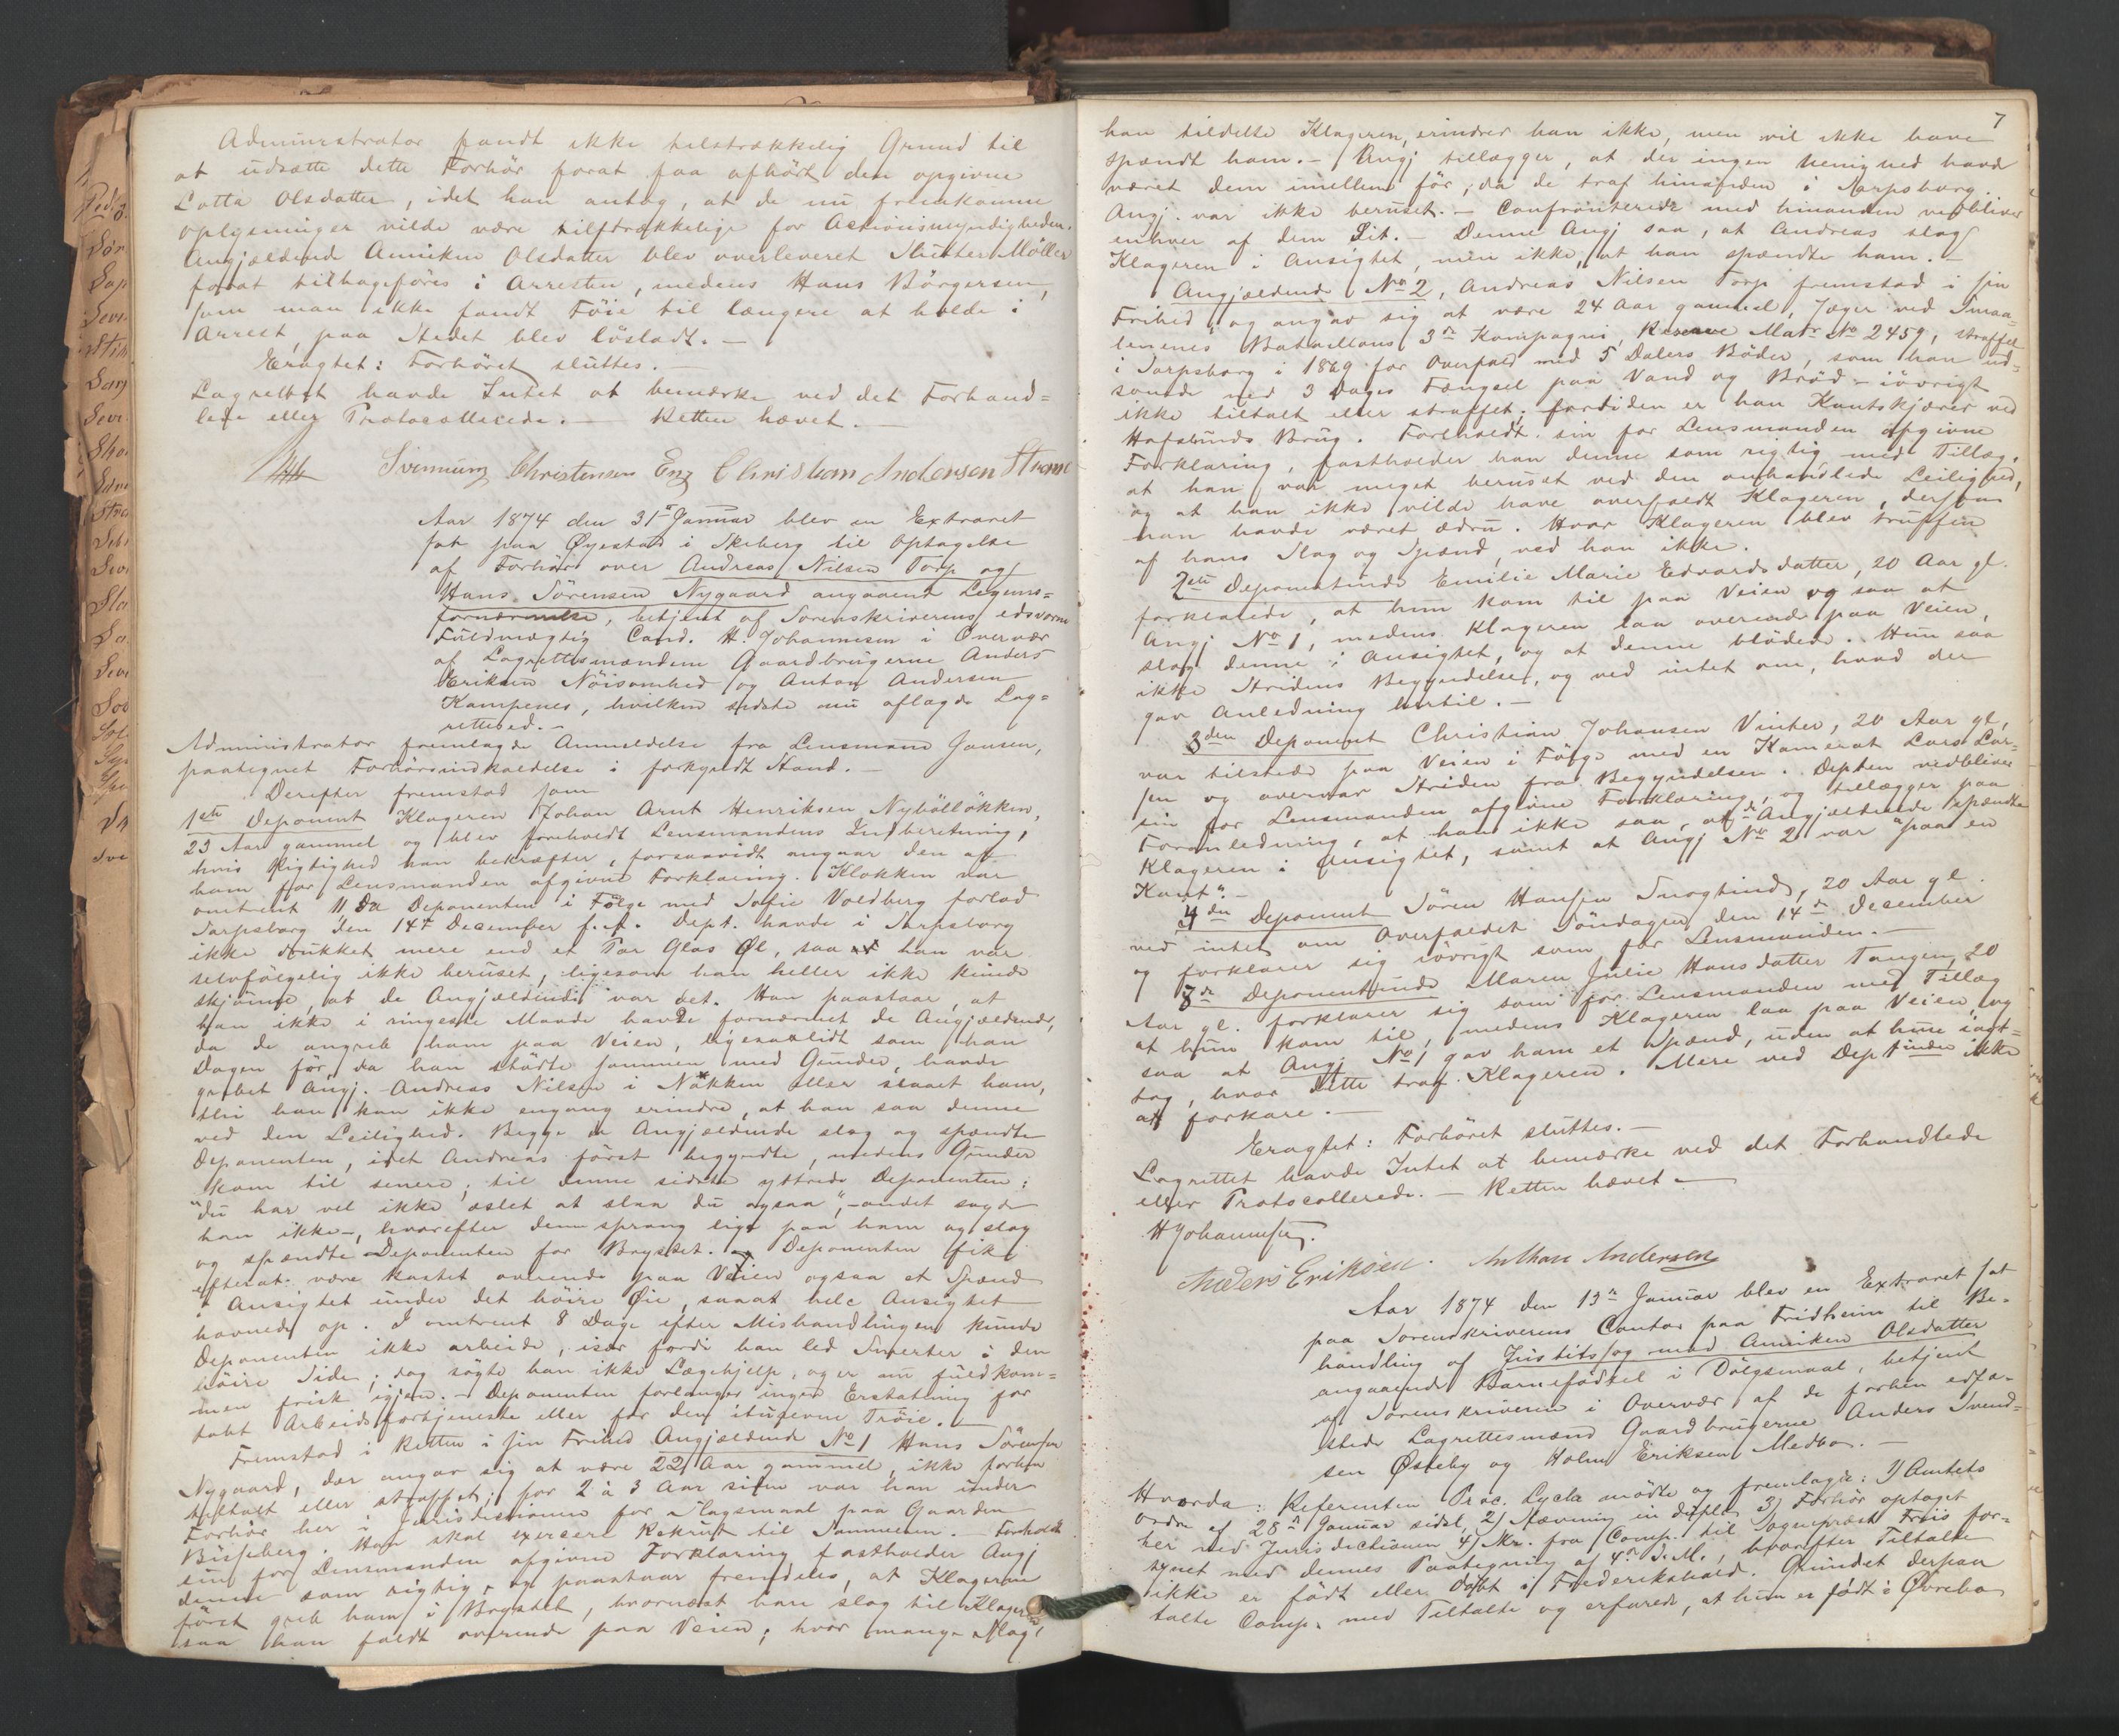 Administrator fandt ikke tilstrækkelig Grund til
at udsætte dette Forhör forat faa afhört den opgivne
Lotta Olsdatter, idet han antog, at de nu fremkomne
Oplysninger vilde være tilstrækkelige for Actionsmyndigheden.
Angjældende Anniken Olsdatter blev overleveret Slutter Möller
forat tilbageföres i Arresten, medens Hans Börgersen,
som man ikke fandt Föie til længere at holde i
Arrest, paa Stedet blev lösladt. —
Eragtet: Forhöret sluttes. —
Lagrettet havde Intet at bemærke ved det Forhand=
lede eller Protocollerede. — Retten hævet. —
Svenning Christensen Eng Christian Andersen
Aar 1874 den 31te Januar blev en Extraret
sat paa Øyestad i Skeberg til Optagelse
af Forhör over Andreas Nilsen Torp og
Hans Sörensen Nygaard angaaende Legems=
fornærmelse, betjent af Sorenskriverens edsvorne
Fuldmægtig Cand. H. Johannesen i Overvær
af Lagrettesmændene Gaardbrugerne Anders
Eriksen Nöisomhed og Anton Andersen
Kampenes, hvilken sidste nu aflagde Lag=
retteed. —
Administrator fremlagde Anmeldelse fra Lensmand Jansen,
paategnet Forhörsindkaldelse i forkyndt Stand. —
Derefter fremstod som
1ste Deponent Klageren Johan Arnt Henriksen Nybölløkken,
23 Aar gammel og blev foreholdt Lensmandens Indberetning,
hvis Rigtighed han bekræfter, forsaavidt angaar den af
ham for Lensmanden afgivne Forklaring. Klokken var
omtrent 11, da Deponenten i Fölge med Sofie Voldberg forlod
Sarpsborg den 14de December f. A. Dept. havde i Sarpsborg
ikke drukket mere end et Par Glas Øl, saa han var
selvfölgelig ikke beruset, ligesom han heller ikke kunde
skjönne, at de Angjældende var det. Han paastaar, at
han ikke i ringeste Maade havde fornærmet de Angjældende,
da de angreb ham paa Veien, ligesaalidt som han
Dagen för, da han stödte sammen med Gunder, havde
grebet Angj. Andreas Nilsen i Nakken eller slaaet ham,
thi han kan ikke engang erindre, at han saa denne
ved den Leilighed. Begge de Angjældende slog og spændte
Deponenten, idet Andreas först begyndte, medens Gunder
kom til senere; til denne sidste yttrede Deponenten:
"du har vel ikke æslet at slaa du ogsaa", – andet sagde
han ikke –, hvorefter denne sprang lige paa ham og slog
og spændte Deponenten for Brystet. Deponenten fik
efterat være kastet overende paa Veien ogsaa et Spænd
i Ansigtet under det höire Øie, saaat hele Ansigtet
hovnede op. I omtrent 8 Dage efter Mishandlingen kunde
Deponenten ikke arbeide, især fordi han led Smerter i den
höire Side; dog sögte han ikke Lægehjelp, og er nu fuldkom=
men frisk igjen. – Deponenten forlanger ingen Erstatning for
tabt Arbeidsfortjeneste eller for den iturevne Tröie. —
Fremstod i Retten i sin Frihed Angjældende No 1 Hans Sörensen
Nygaard, der angav sig at være 22 Aar gammel, ikke forhen
tiltalt eller straffet; for 2 à 3 Aar siden var han under
Forhör her i Jurisdictionen for Slagsmaal paa Gaarden
Bisseberg. Han skal exercere Rekrut til Sommeren. – Foreholdt
sin for Lensmanden afgivne Forklaring fastholder Angj
denne som rigtig, og paastaar fremdeles, at Klageren
först greb ham i Brystet, hvornæst han slog til Klageren
saa han faldt overende paa Veien; hvor mange Slag
7
han tildelte Klageren, erindrer han ikke, men vil ikke have
spændt ham. – Angj tillægger, at der ingen Uenighed havde
været dem imellem för, da de traf hinanden i Sarpsborg.
Angj. var ikke beruset. — Confronterede med hinanden vedbliver
enhver af dem Sit. — Denne Angj saa, at Andreas slog
Klageren i Ansigtet, men ikke, at han spændte ham. —
Angjældende No 2, Andreas Nilsen Torp fremstod i sin
Frihed og angav sig at være 24 Aar gammel, Jæger ved Smaa=
lenenes Bataillons 3die Kompagni, Reserve Matr No 2459, straffet
i Sarpsborg i 1869 for Overfald med 5 Dalers Böder, som han ud=
sonede med 3 Dages Fængsel paa Vand og Bröd – iövrigt
ikke tiltalt eller straffet; fortiden er han Kantskjærer ved
Hafslunds Brug. Foreholdt sin for Lensmanden afgivne
Forklaring, fastholder han denne som rigtig med Tillæg,
at han var meget beruset ved den omhandlede Leilighed,
og at han ikke vilde have overfaldt Klageren, dersom
han havde været ædru. Hvor Klageren blev truffen
af hans Slag og Spænd, ved han ikke.
2den Deponentinde Emilie Marie Edvardsdatter, 20 Aar gl.
forklarede, at hun kom til paa Veien og saa at
Angj No 1, medens Klageren laa overende paa Veien,
slog denne i Ansigtet, og at denne blödede. Hun saa
ikke Stridens Begyndelse, og ved intet om, hvad der
gav Anledning hertil. —
3den Deponent Christian Johansen Vinter, 20 Aar gl,
var tilstede paa Veien i Fölge med en Kamerat Lars Lar=
sen og overvar Striden fra Begyndelsen. Depten vedbliver
sin for Lensmanden afgivne Forklaring, og tillægger paa
Foranledning, at han ikke saa, at de Angjældende spændte
Klageren i Ansigtet, samt at Angj No 2 var "paa en
Kant". —
4de Deponent Sören Hansen Snoghind, 20 Aar gl.
ved intet om Overfaldet Söndagen den 14de December
og forklarer sig iövrigt som for Lensmanden. —
Deponentinde Maren Julie Hansdatter Tangen, 20
Aar gl. forklarer sig som for Lensmanden med Tillæg
at hun kom til, medens Klageren laa paa Veien, og
saa at Angj No 1 gav ham et Spænd, uden at hun iagt=
tog, hvor dette traf Klageren. Mere ved Deptinden ikke
at forkare. —
Eragtet: Forhöret sluttes. —
Lagrettet havde Intet at bemærke ved det Forhandlede
eller Protocollerede. — Retten hævet —
H Johannesen.
Anders Eriksen. Anthon Andersen
Aar 1874 den 13de Januar blev en Extraret sat
paa Sorenskriverens Contor paa Fridheim til Be=
handling af Justitssag mod Anniken Olsdatter
angaaende Barnefödsel i Dölgsmaal, betjent
af Sorenskriveren i Overvær af de forhen edfæ=
stede Lagrettesmænd Gaardbrugerne Anders Svend=
sen Østeby og Holm Eriksen Medbo. —
Hvorda: Referenten Proc. Lycke mödte og fremlagde: 1) Amtets
Ordre af 28de Januar sidst, 2) Stævning in duplo, 3) Forhör optaget
her ved Jurisdictionen 4) Skr. fra Comp. til Sogneprest Friis for=
synet med dennes Paategning af 4de d. M., hvorefter Tiltalte
ikke er födt eller döbt i Frederikshald. Grundet derpaa
talte Comp. med Tiltalte og erfarede, at hun er födt i Øvrebø